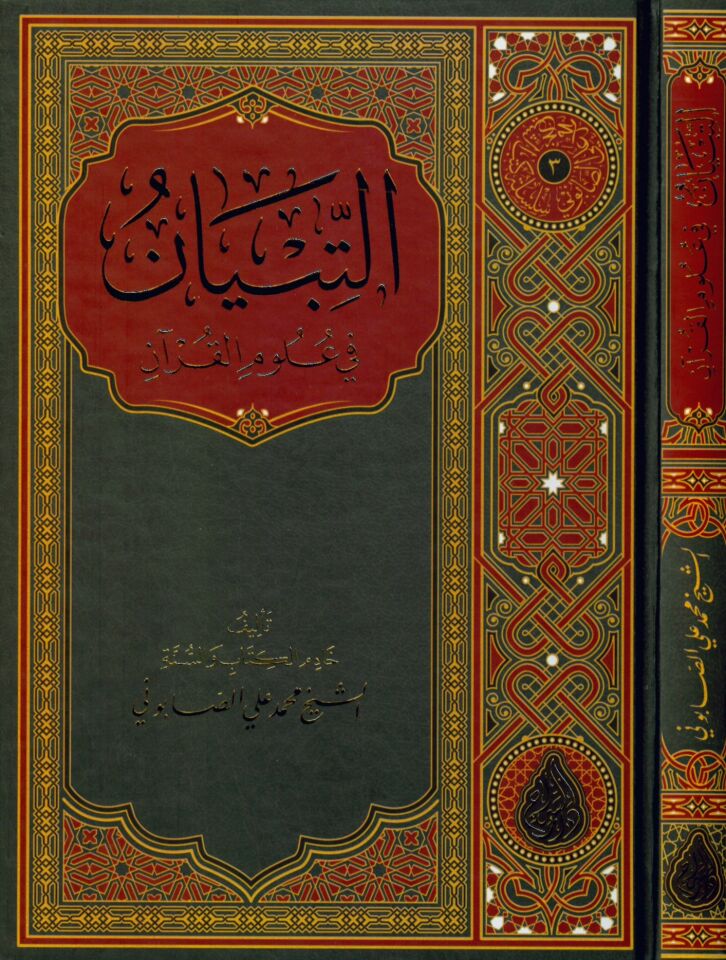 التِّبْيَانُ
فِي عُلُومِ القُرْآنِ
تَأْلِيفُ
خَادِمِ الكِتَابِ وَالسُّنَّةِ
الشيخ محمد علي الصابوني
٣
التِّبْيَانُ فِي عُلُومِ القُرْآنِ
الشيخ محمد علي الصابوني